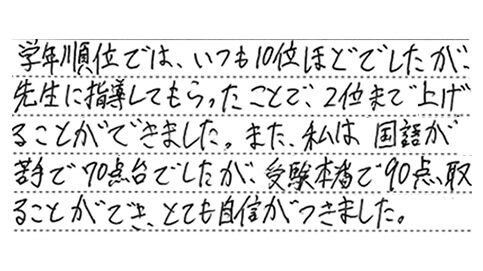 学年順位では、いつも10位ほどでしたが、
先生に指導してもらったことで、2位まで上げ
ることができました。また、私は国語が
苦手で70点台でしたが、受験本番で90点、取
ることができ、とても自信がつきました。